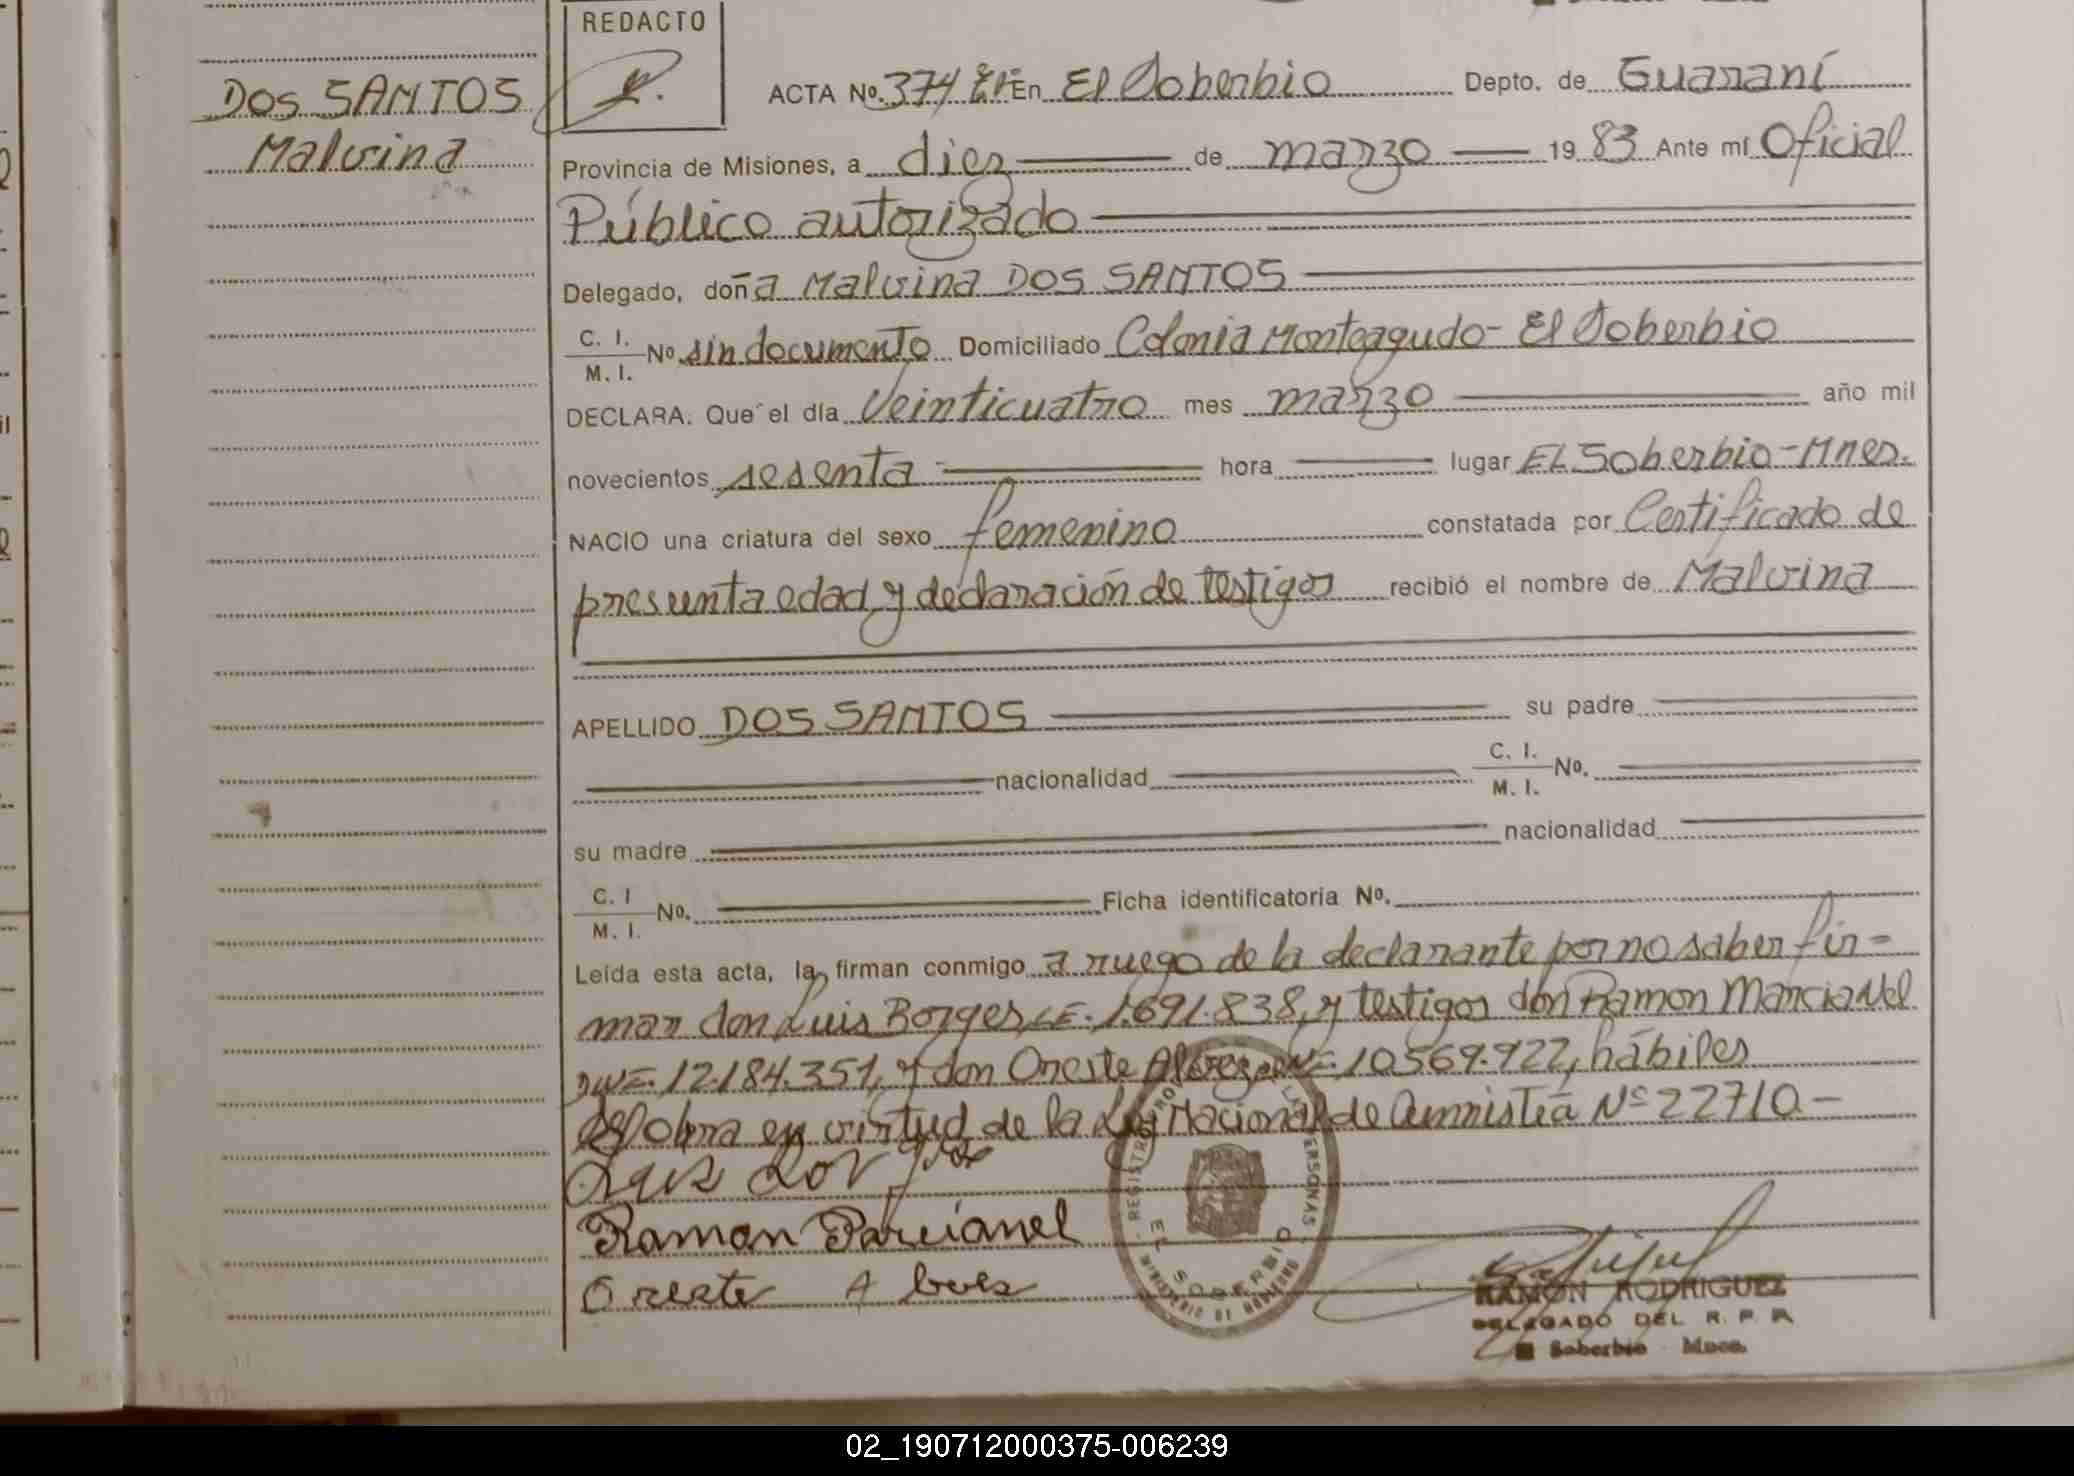 REDACTO
DOS SANTOS
Malvina
ACTA Nº. 374 En El Soberbio Depto. de Guaraní
Provincia de Misiones, a diez de marzo 1983 Ante mí Oficial
Público autorizado
Delegado, doña Malvina DOS SANTOS
C. I.
M. I. Nº sin documento Domiciliado Colonia Monteagudo - El Soberbio
DECLARA: Que el día Veinticuatro mes marzo año mil
novecientos sesenta hora lugar EL Soberbio - Mnes.
NACIO una criatura del sexo femenino constatada por Certificado de
presunta edad y declaración de testigos recibió el nombre de Malvina
APELLIDO DOS SANTOS su padre
nacionalidad C. I.
M. I. Nº.
su madre nacionalidad
C. I
M. I. Nº. Ficha identificatoria Nº.
Leída esta acta, la firman conmigo a ruego de la declarante por no saber fir=
mar don Luis Borges LE. 1.691.838, y testigos don Ramon Marcianel
DNI. 12.184.351, y don Oreste 10.569.922, hábiles
obra en virtud de la Ley Nacional de Amnistía Nº 22710 -
Ramon Parcianel
Oreste
REGISTRO PERSONAS
EL SOBERBIO
MINISTERIO DE GOBIERNO
RAMON RODRIGUEZ
DELEGADO DEL R. P. P.
El Soberbio Mnes.
02_190712000375-006239